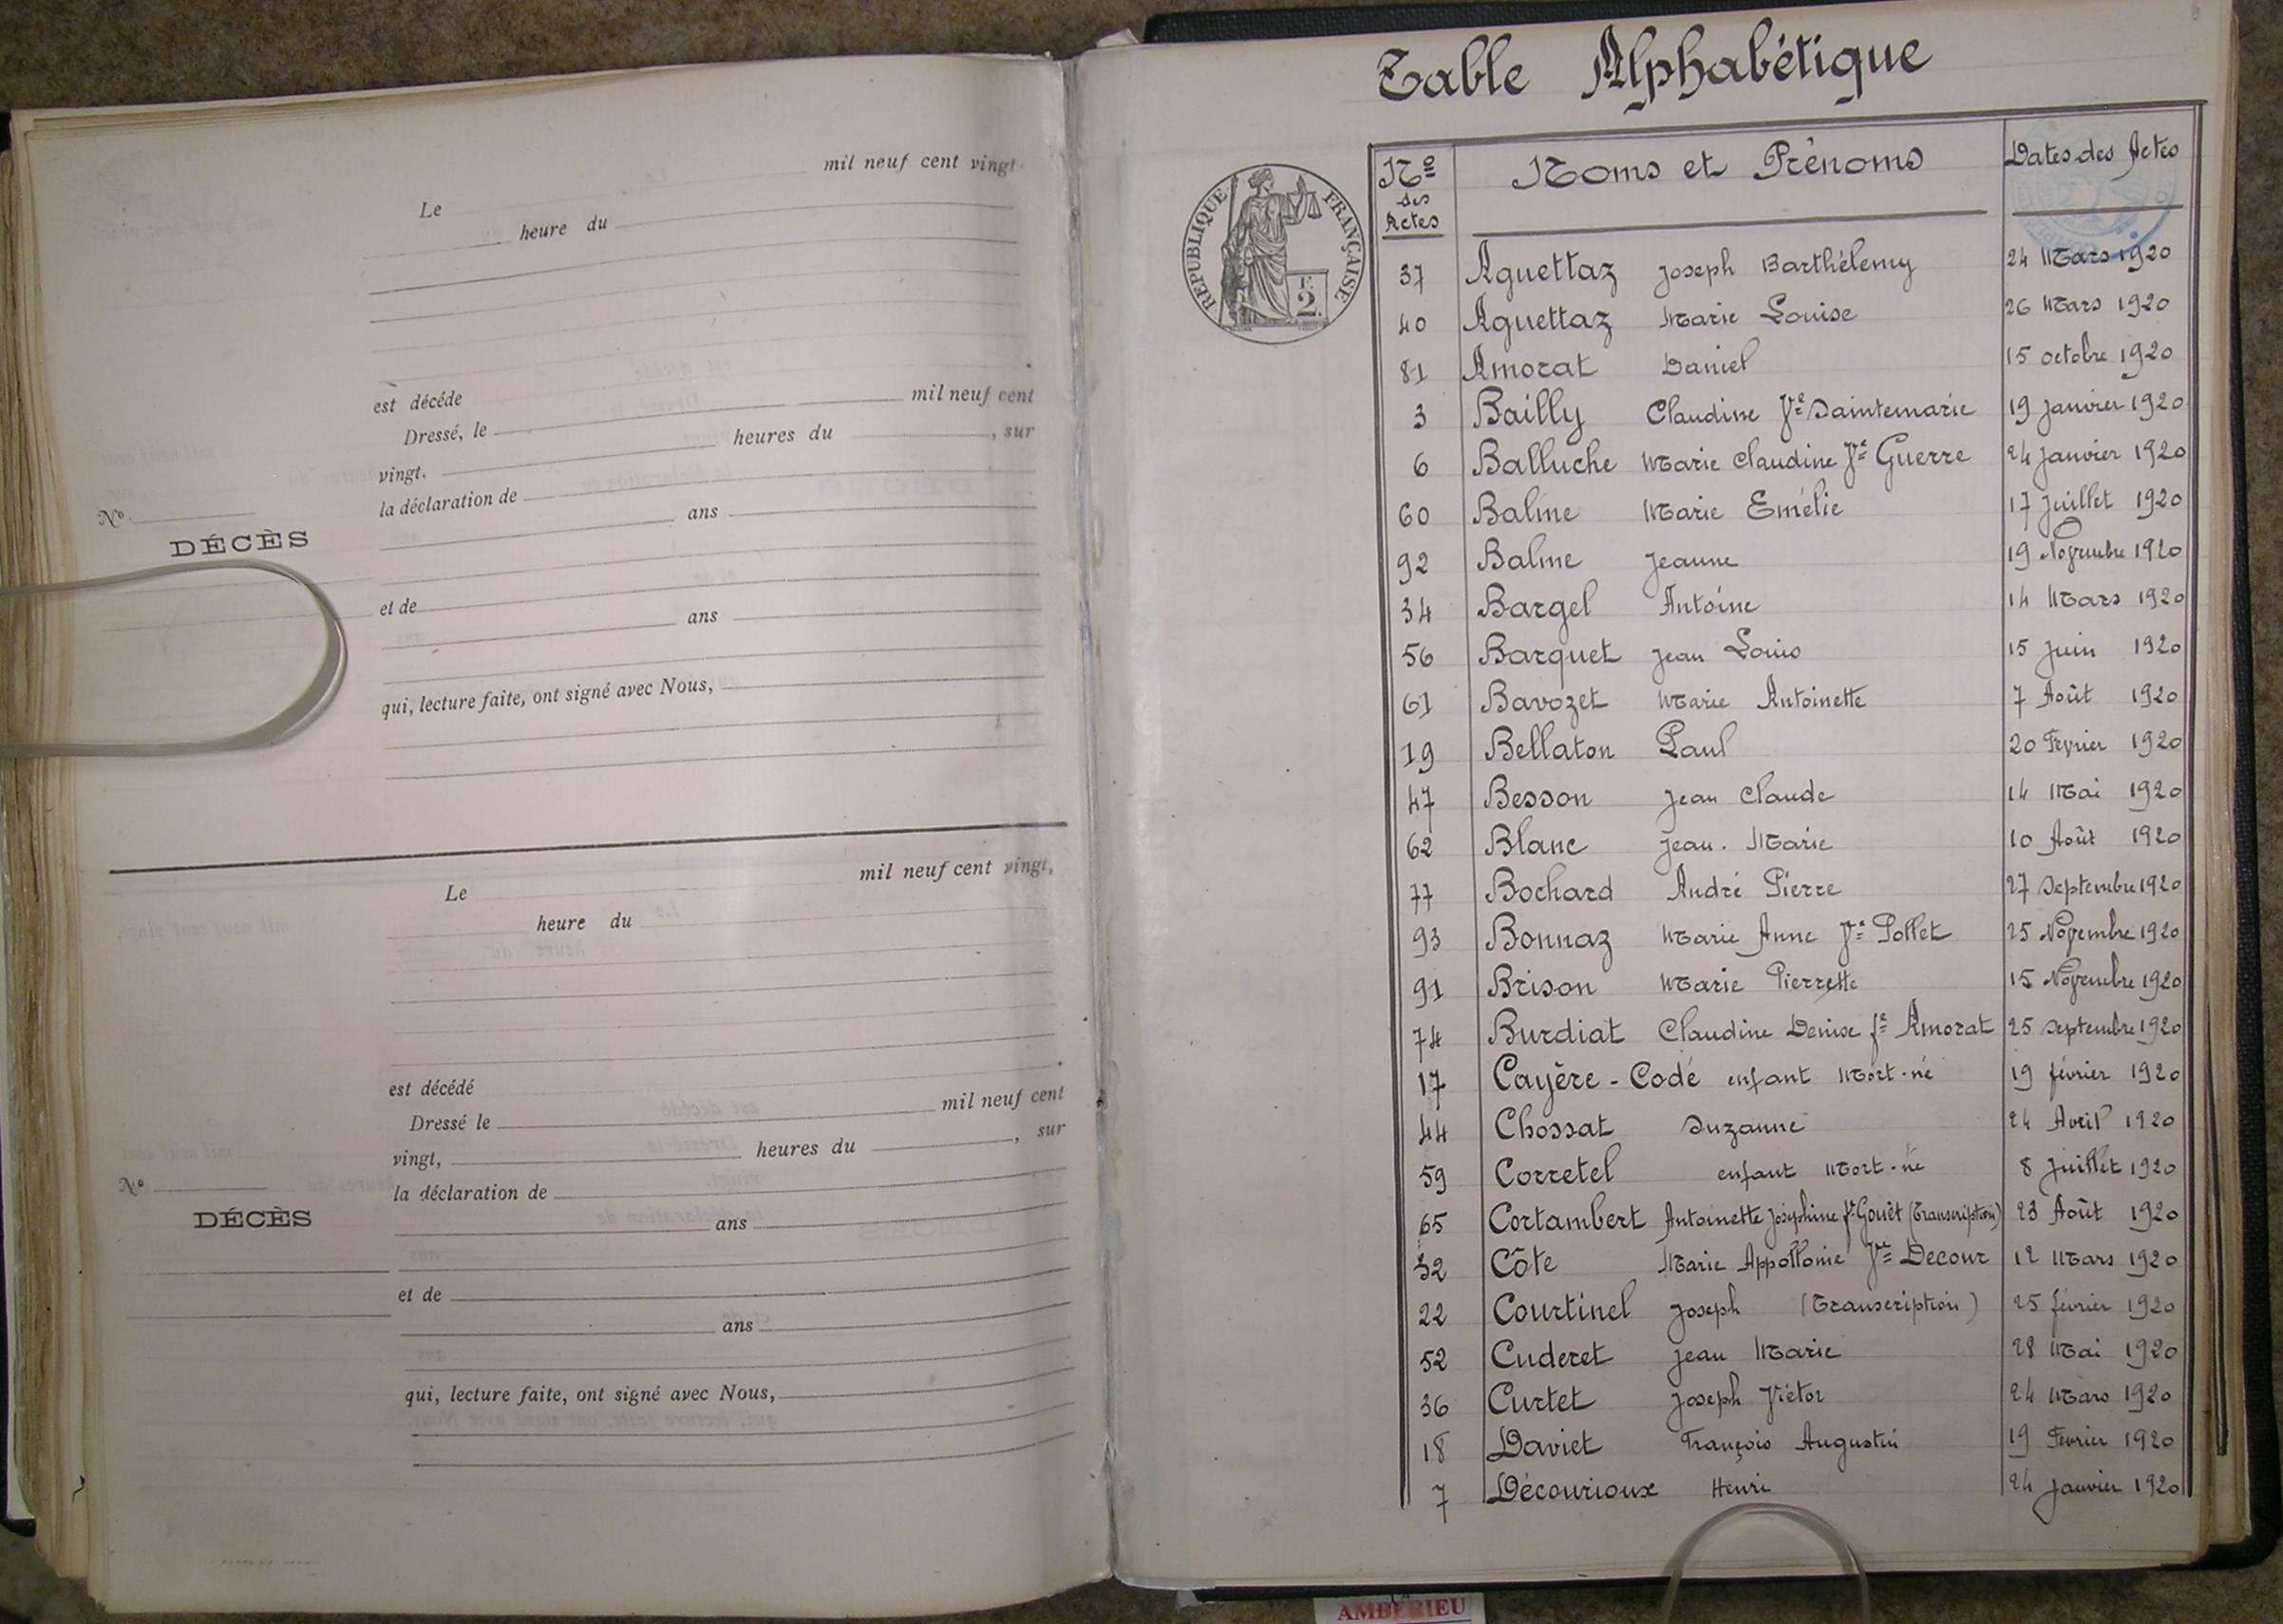 mil neuf cent vingt
Le
heure du
est décédé
mil neuf cent
Dressé, le
vingt, heures du , sur
la déclaration de
Nº ans
DÉCÈS
et de
ans
qui, lecture faite, ont signé avec Nous,
mil neuf cent vingt,
Le
heure du
est décédé
mil neuf cent
Dressé le
vingt, heures du , sur
Nº la déclaration de
DÉCÈS ans
et de
ans
qui, lecture faite, ont signé avec Nous,
Table Alphabétique
RÉPUBLIQUE FRANÇAISE
2
Nº des Actes Noms et Prénoms Dates des Actes
37 Aguettaz Joseph Barthélemy 24 Mars 1920
40 Aguettaz Marie Louise 26 Mars 1920
81 Amorat Daniel 15 octobre 1920
3 Bailly Claudine Vᵉ Saintemarie 19 janvier 1920
6 Balluche Marie Claudine Vᵉ Guerre 24 janvier 1920
60 Balme Marie Emélie 17 Juillet 1920
92 Balme Jeanne 19 Novembre 1920
34 Bargel Antoine 14 Mars 1920
56 Barquet Jean Louis 15 Juin 1920
61 Bavozet Marie Antoinette 7 Août 1920
19 Bellaton Paul 20 Fevrier 1920
47 Besson Jean Claude 14 Mai 1920
62 Blanc Jean. Marie 10 Août 1920
77 Bochard André Pierre 27 Septembre 1920
93 Bonnaz Marie Anne Vᵉ Pollet 25 Novembre 1920
91 Brison Marie Pierrette 15 Novembre 1920
74 Burdiat Claudine Denise fᵉ Amorat 25 Septembre 1920
17 Cayère - Codé enfant Mort-né 19 février 1920
44 Chossat Suzanne 24 Avril 1920
59 Corretel enfant Mort-né 8 Juillet 1920
65 Cortambert Antoinette Joséphine fᵉ Gouët (Transcription) 23 Août 1920
32 Côte Marie Appollonie Vᵉ Decour 12 Mars 1920
22 Courtinel Joseph (Transcription) 25 février 1920
52 Cuderet Jean Marie 28 Mai 1920
36 Curtet Joseph Victor 24 Mars 1920
18 Daviet François Augustin 19 Fevrier 1920
7 Décourioux Henri 24 Janvier 1920
AMBERIEU